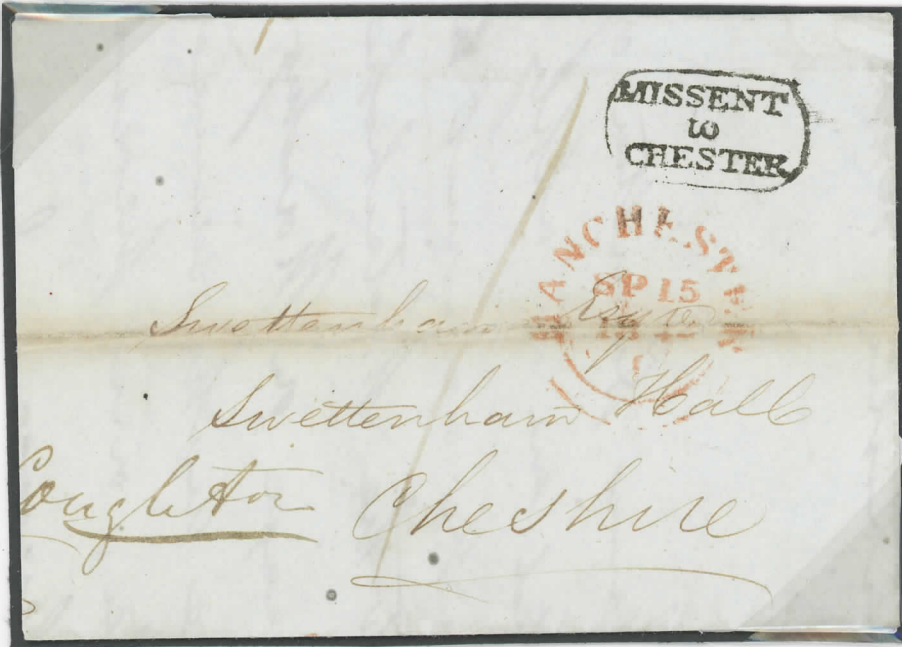 MISSENT
to
CHESTER
MANCHESTER
SP 15
Swettenham Esqre
Swettenham Hall
Congleton Cheshire